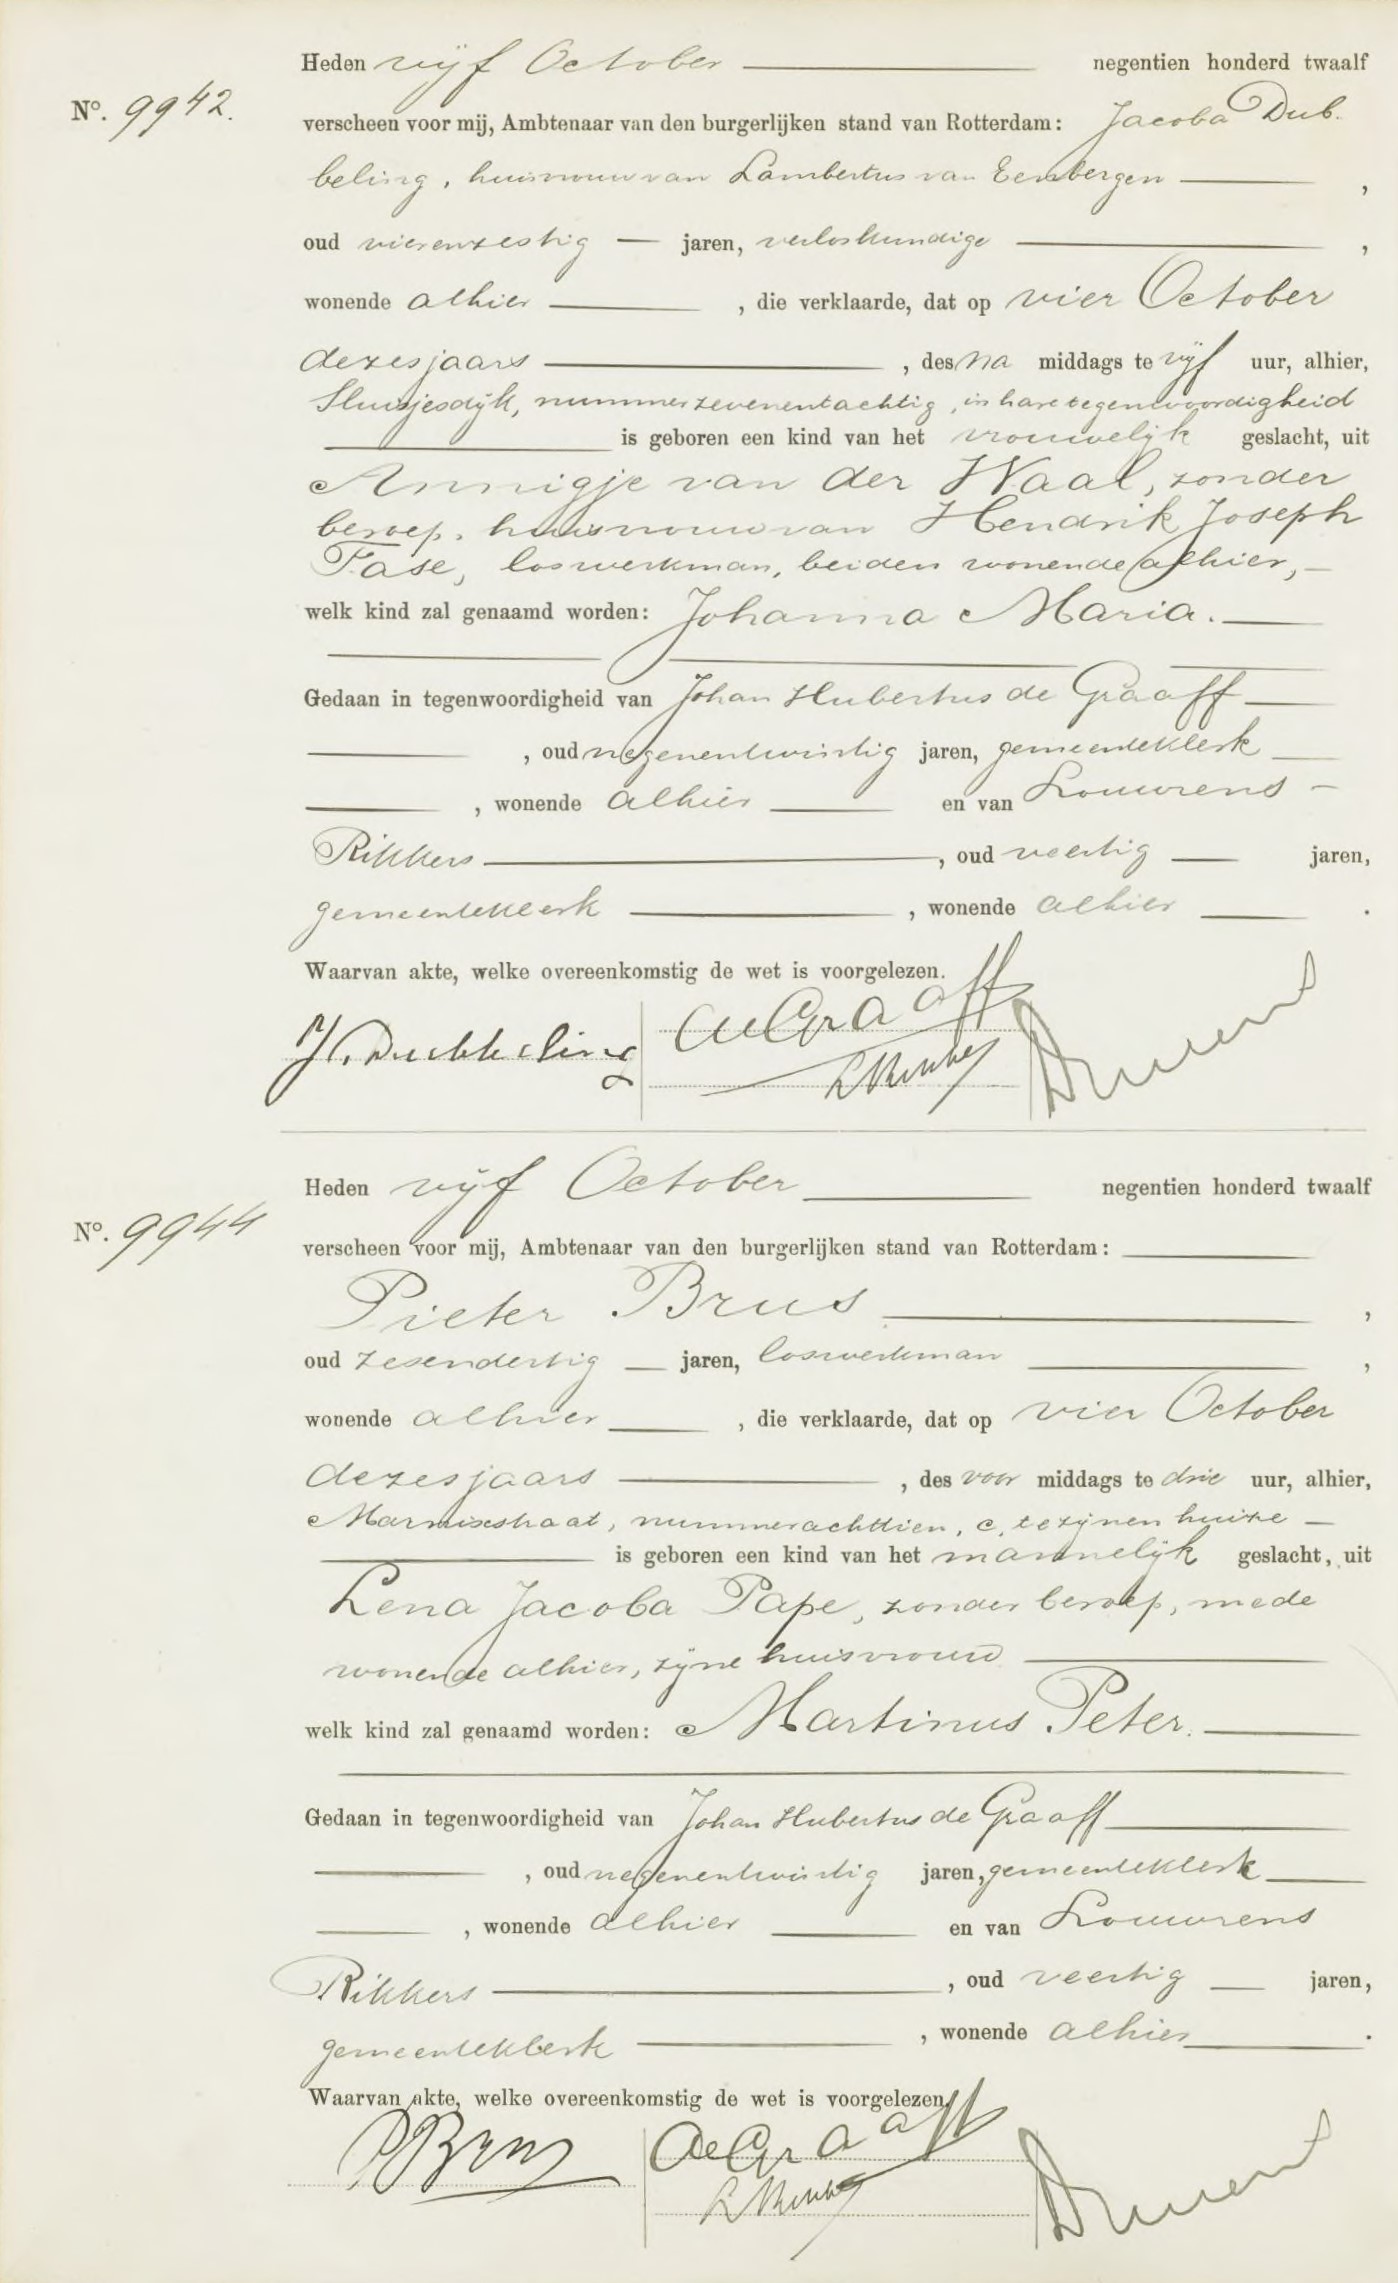 Heden vijf October negentien honderd twaalf
No. 9942.
verscheen voor mij, Ambtenaar van den burgerlijken stand van Rotterdam: Jacoba Dub-
beling, huisvrouw van Lambertus van Eersbergen,
oud vierenzestig jaren, verloskundige,
wonende alhier, die verklaarde, dat op vier October
dezes jaars, des na middags te vijf uur, alhier,
Sluisjesdijk, nummer zevenentachtig, in hare tegenwoordigheid
is geboren een kind van het vrouwelijk geslacht, uit
Annigje van der Waal, zonder
beroep, huisvrouw van Hendrik Joseph
Fase, loswerkman, beiden wonende alhier,
welk kind zal genaamd worden: Johanna Maria.
Gedaan in tegenwoordigheid van Johan Hubertus de Graaff
, oud negenentwintig jaren, gemeenteklerk
, wonende alhier en van Louwrens
Rikkers, oud veertig jaren,
gemeenteklerk, wonende alhier.
Waarvan akte, welke overeenkomstig de wet is voorgelezen.
J. Dubbeling de Graaff
L Rikkers
Heden vijf October negentien honderd twaalf
No. 9944
verscheen voor mij, Ambtenaar van den burgerlijken stand van Rotterdam:
Pieter Brus,
oud zesendertig jaren, loswerkman,
wonende alhier, die verklaarde, dat op vier October
dezes jaars, des voor middags te drie uur, alhier,
Marnixstraat, nummer achttien, c, te zijnen huize
is geboren een kind van het mannelijk geslacht, uit
Lena Jacoba Pape, zonder beroep, mede
wonende alhier, zijne huisvrouw
welk kind zal genaamd worden: Martinus Peter.
Gedaan in tegenwoordigheid van Johan Hubertus de Graaff
, oud negenentwintig jaren, gemeenteklerk
, wonende alhier en van Louwrens
Rikkers, oud veertig jaren,
gemeenteklerk, wonende alhier.
Waarvan akte, welke overeenkomstig de wet is voorgelezen.
P Brus de Graaff
L Rikkers